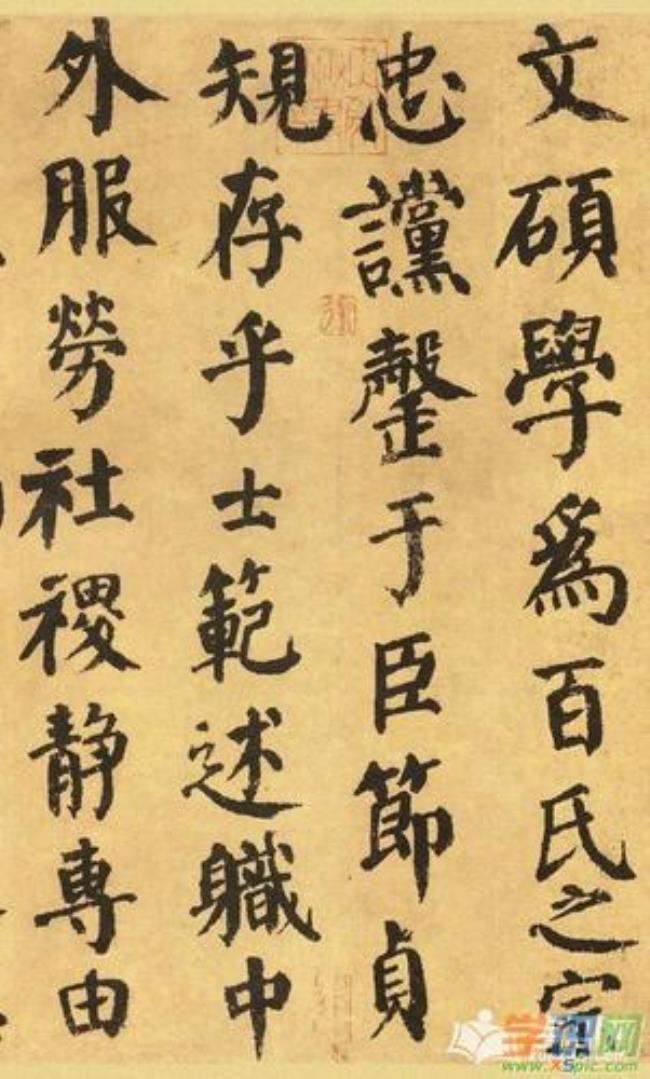 文碩學爲百氏之宗
忠讜罄于臣節貞
規存乎士範述職中
外服勞社稷静專由
学识网
www.xspic.com